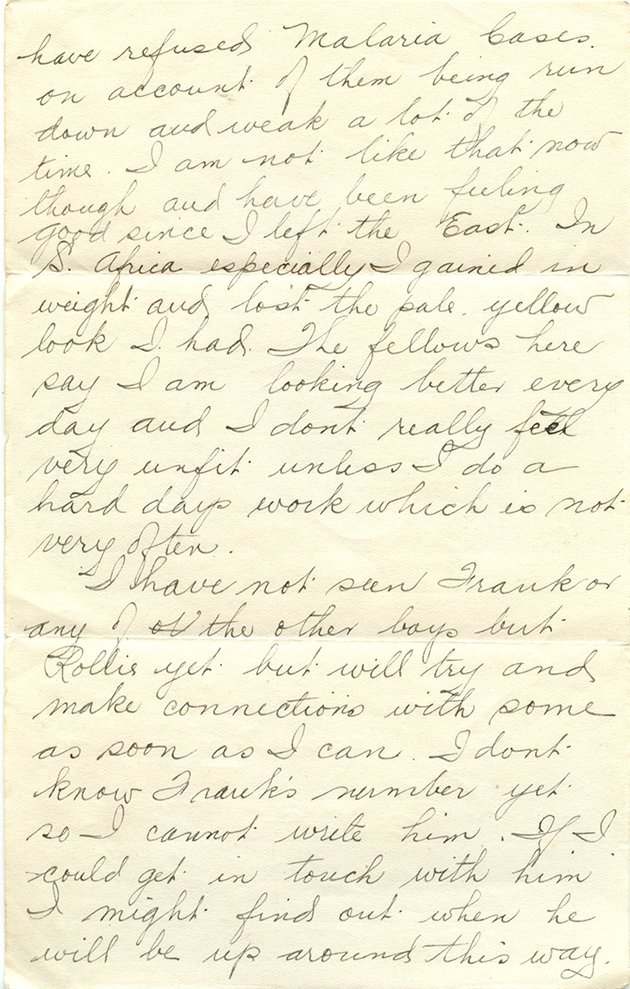 have refused Malaria Cases.
on account of them being run
down and weak a lot of the
time. I am not like that now
though and have been feeling
good since I left the East. In
S. Africa especially I gained in
weight and lost the pale yellow
look I had. The fellows here
say I am looking better every
day and I dont really feel
very unfit unless I do a
hard days work which is not
very often.
I have not seen Frank or
any of the other boys but
Rollie yet but will try and
make connections with some
as soon as I can. I dont
know Frank's number yet
so I cannot write him. If I
could get in touch with him
I might find out when he
will be up around this way.